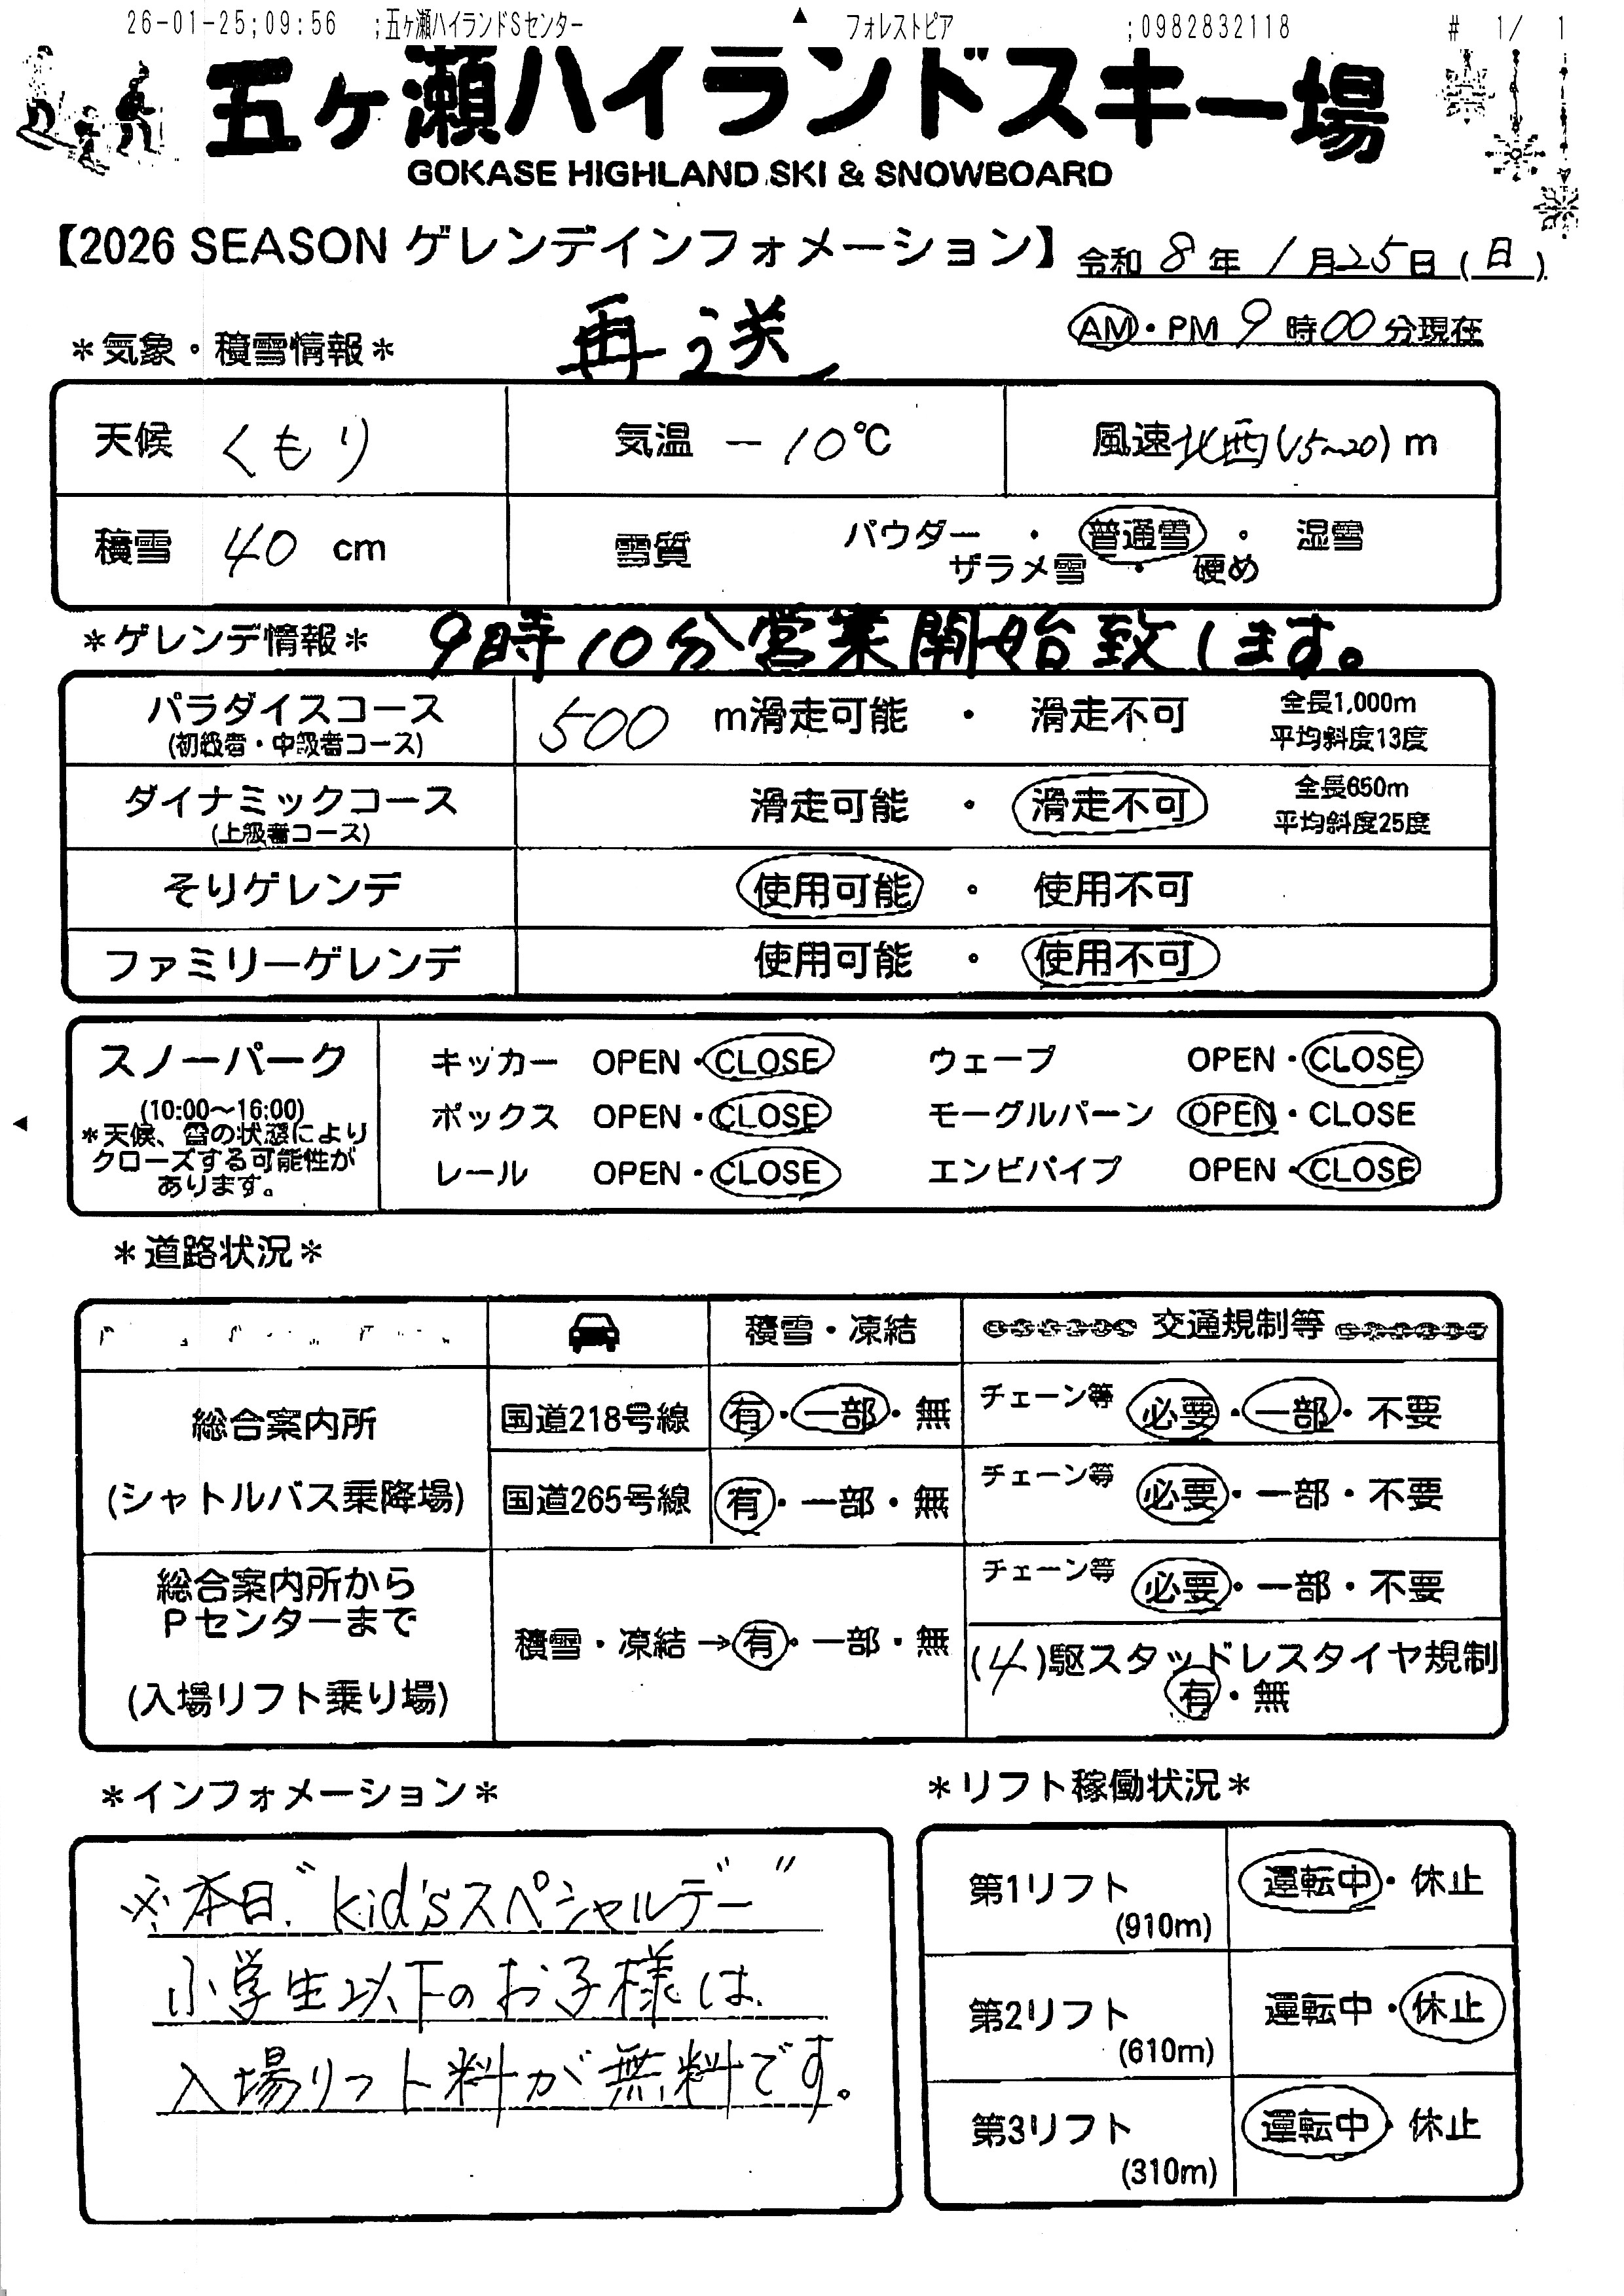 26-01-25;09:56 ;五ヶ瀬ハイランドSセンター フォレストピア ;0982832118 # 1/ 1
五ヶ瀬ハイランドスキー場
GOKASE HIGHLAND SKI & SNOWBOARD
【2026 SEASON ゲレンデインフォメーション】 令和 8 年 1 月 25 日 (日)
再送
AM・PM 9 時 00 分現在
＊気象・積雪情報＊
天候 くもり 気温 -10℃ 風速 北西(15~20) m
積雪 40 cm 雪質 パウダー ・ 普通雪 ・ 湿雪
ザラメ雪 ・ 硬め
＊ゲレンデ情報＊ 9時10分営業開始致します。
パラダイスコース 500 m滑走可能 ・ 滑走不可 全長1,000m
(初級者・中級者コース) 平均斜度13度
ダイナミックコース 滑走可能 ・ 滑走不可 全長650m
(上級者コース) 平均斜度25度
そりゲレンデ 使用可能 ・ 使用不可
ファミリーゲレンデ 使用可能 ・ 使用不可
スノーパーク キッカー OPEN・CLOSE ウェーブ OPEN・CLOSE
(10:00～16:00) ボックス OPEN・CLOSE モーグルバーン OPEN・CLOSE
＊天候、雪の状態により
クローズする可能性が
あります。 レール OPEN・CLOSE エンビパイプ OPEN・CLOSE
＊道路状況＊
積雪・凍結 交通規制等
総合案内所 国道218号線 有・一部・無 チェーン等 必要・一部・不要
(シャトルバス乗降場) 国道265号線 有・一部・無 チェーン等 必要・一部・不要
総合案内所から チェーン等 必要・一部・不要
Pセンターまで
積雪・凍結→有・一部・無 (4)駆スタッドレスタイヤ規制
(入場リフト乗り場) 有・無
＊インフォメーション＊
※本日"kid'sスペシャルデー"
小学生以下のお子様は、
入場リフト料が無料です。
＊リフト稼働状況＊
第1リフト 運転中・休止
(910m)
第2リフト 運転中・休止
(610m)
第3リフト 運転中・休止
(310m)